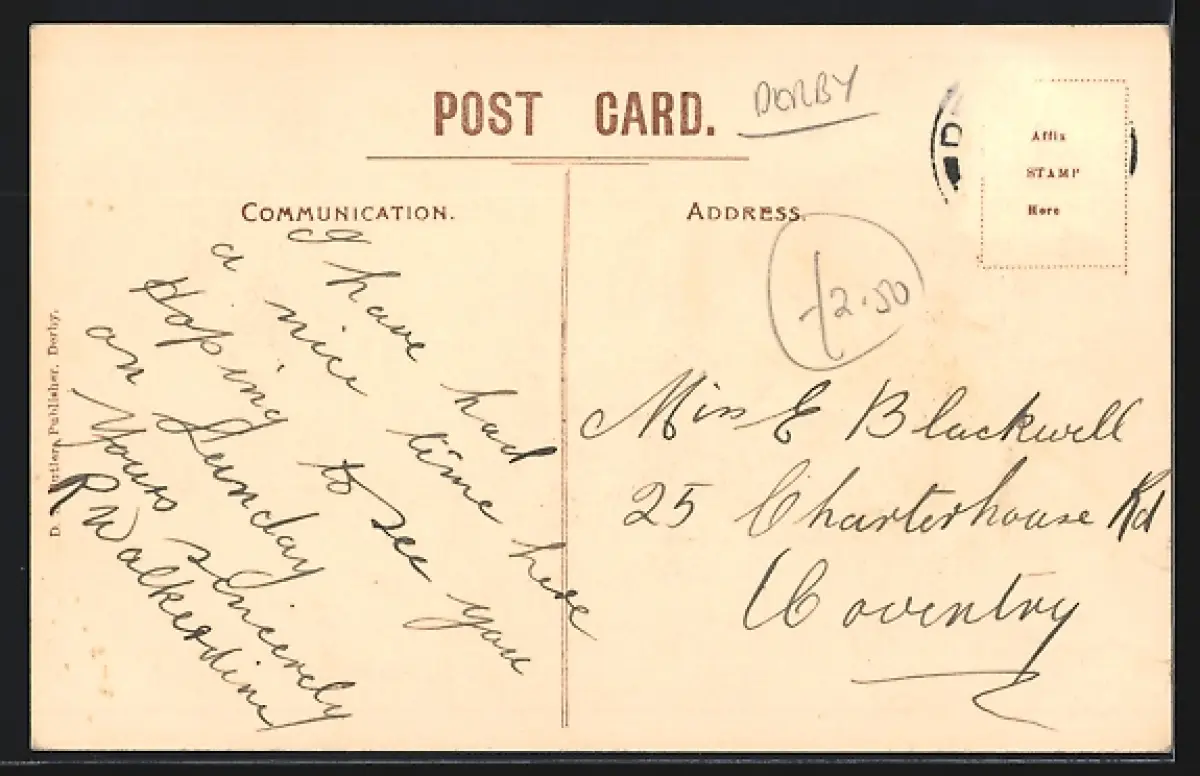 POST CARD.
DORBY
D
Affix
STAMP
Here
COMMUNICATION.
ADDRESS.
£2.50
I have had
a nice time here
Hoping to see you
on Sunday
Yours sincerely
R Walkerdine
Miss E Blackwell
25 Charterhouse Rd
Coventry
Publisher, Derby.